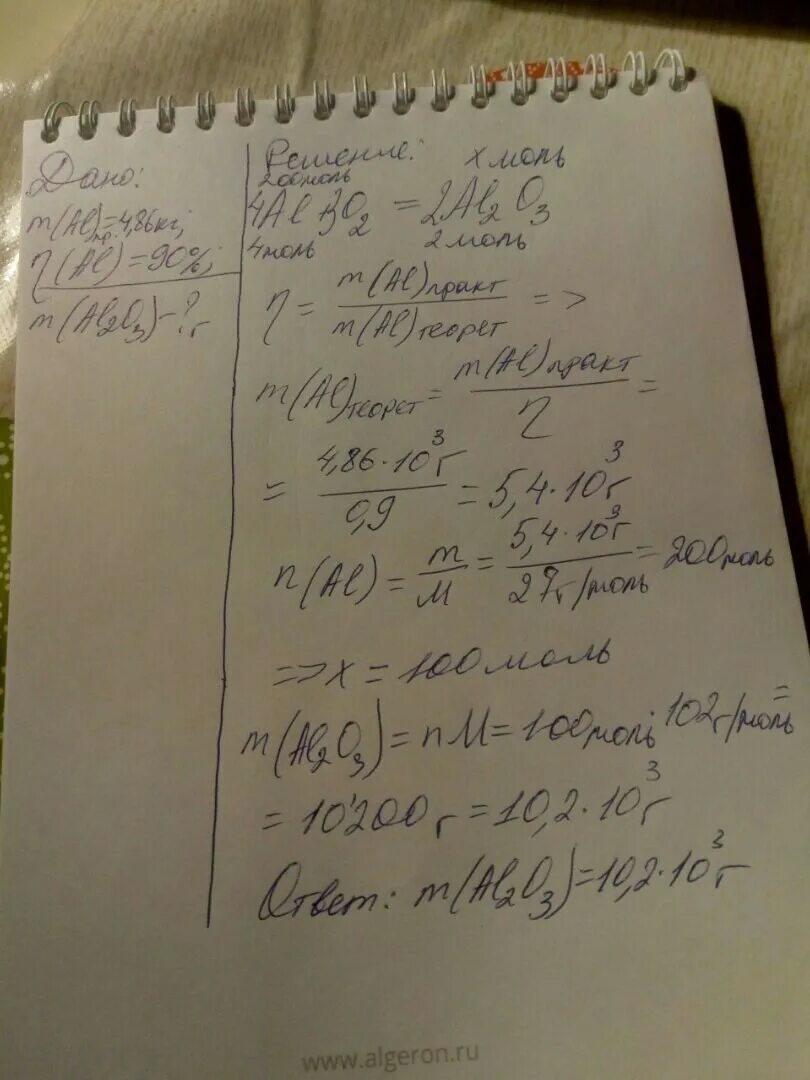 Дано:
m(Al)пр.=4,86кг;
η(Al)=90%;
m(Al₂O₃)-?г
Решение:
200моль х моль
4Al+3O₂=2Al₂O₃
4моль 2моль
η = m(Al)практ / m(Al)теорет =>
m(Al)теорет = m(Al)практ / η =
= 4,86·10³г / 0,9 = 5,4·10³г
n(Al) = m/M = 5,4·10³г / 27г/моль = 200моль
=> х = 100моль
m(Al₂O₃) = nM = 100моль·102г/моль =
= 10'200г = 10,2·10³г
Ответ: m(Al₂O₃)=10,2·10³г
www.algeron.ru